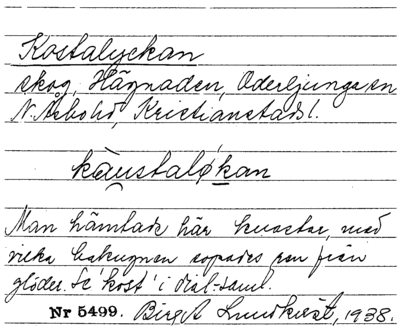 Kostalyckan
skog, Hägnaden, Oderljunga sn
N. Åsbo hd, Kristianstads l.
kåustaløkan
Man hämtade här kvastar, med
vilka bakugnen sopades ren från
glöder. Se 'kost' i dial-saml.
Nr 5499. Birgit Lundkvist, 1938.